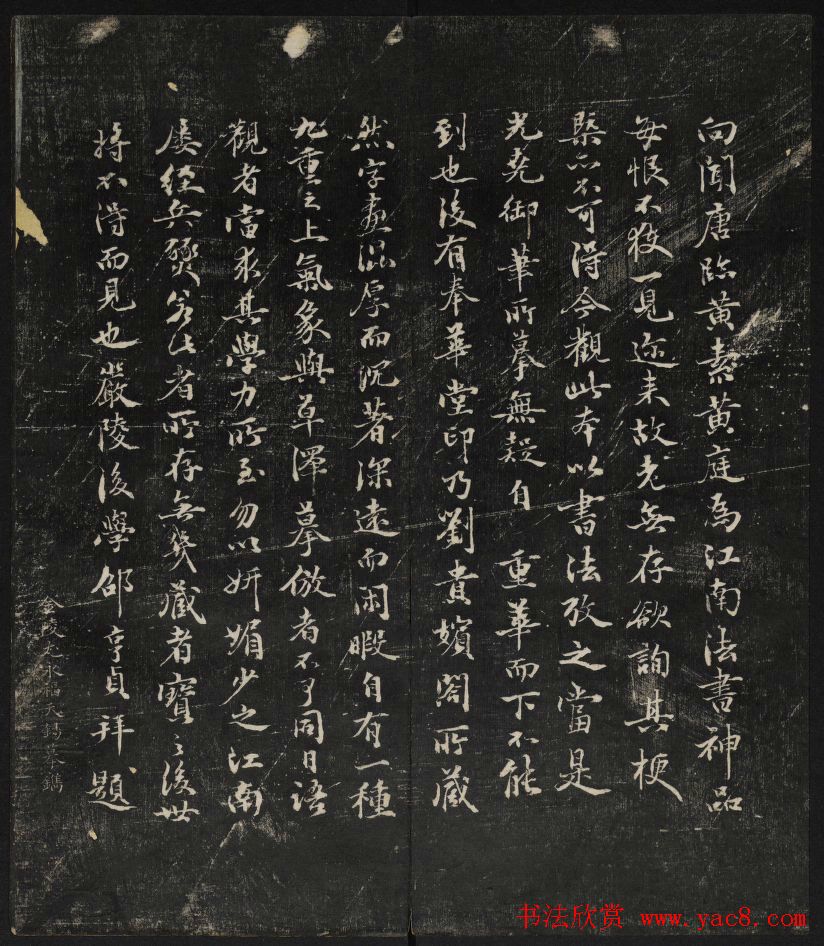 向聞唐臨黃素黃庭為江南法書神品
每恨不獲一見邇来故老無存欲詢其梗
槩亦不可得今觀此本以書法攷之當是
光堯御筆所摹無疑自 重華而下不能
到也後有奉華堂印乃劉貴嬪閣所藏
然字畫渾厚而沉著深遠而閑暇自有一種
九重之上氣象與草澤摹倣者不可同日語
觀者當求其學力所至勿以妍媚少之江南
屢經兵燹若此者所存無幾藏者寶之後世
將不得而見也嚴陵後學邵亨貞拜題
书法欣赏 www.yac8.com